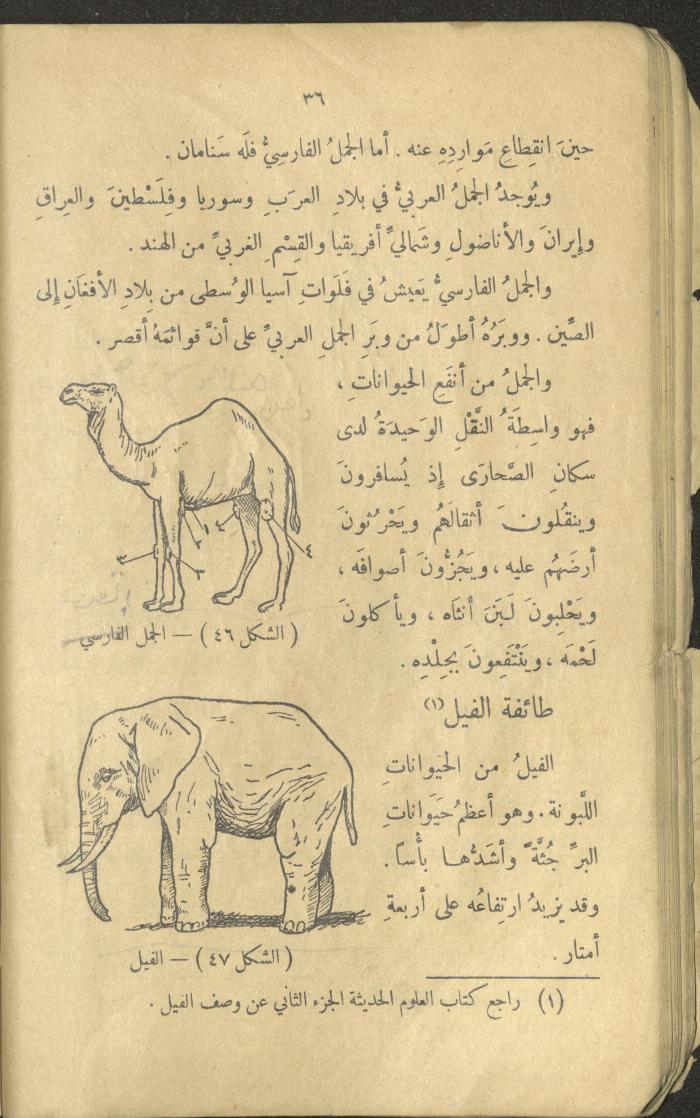 ٣٦
حينَ انقِطاعِ مَوارِدِهِ عنه . أما الجملُ الفارسِيُّ فلَه سَنامان .
ويُوجدُ الجملُ العربيُّ في بلادِ العرَبِ وسوريا وفِلَسْطينَ والعِراقِ
وإيرانَ والأناضولِ وشَماليِّ أفريقيا والقِسْمِ الغربيِّ من الهند .
والجملُ الفارسيُّ يَعيشُ في فَلَواتِ آسيا الوُسطى من بِلادِ الأفغانِ إلى
الصِّين . ووبَرُهُ أطوَلُ من وبَرِ الجملِ العربيِّ على أنَّ قوائمَهُ أقصر .
والجملُ من أنفَعِ الحيواناتِ ،
فهو واسِطَةُ النَّقْلِ الوَحيدَةُ لدى
سكانِ الصَّحارَى إذ يُسافرونَ
وينقُلونَ أثقالَهُم ويَحْرُثونَ
أرضَهُم عليه ، ويَجُزُّونَ أصوافَه ،
ويَحْلِبونَ لَبَنَ أنثاه ، ويأكلونَ
لَحْمَه ، ويَنْتَفِعونَ بجِلْدِه .
١
٢
٣
٣
٤
٤
(الشكل ٤٦) — الجمل الفارسي
طائفة الفيل (١)
الفيلُ من الحَيَواناتِ
اللَّبونة . وهو أعظمُ حَيَواناتِ
البرِّ جُثَّةً وأشَدُّها بأْساً .
وقد يزيدُ ارتِفاعُه على أربعةِ
أمتار .
(الشكل ٤٧) — الفيل
(١) راجع كتاب العلوم الحديثة الجزء الثاني عن وصف الفيل .